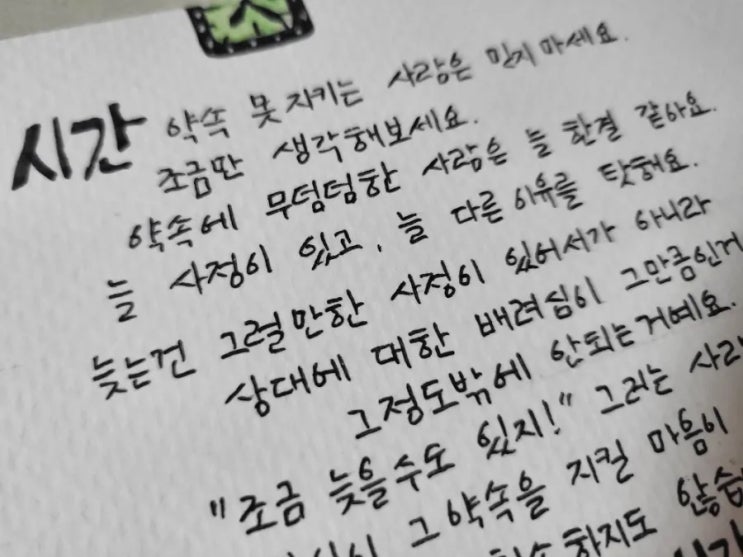 시간 약속 못 지키는 사람은 믿지 마세요.
조금만 생각해보세요.
약속에 무덤덤한 사람은 늘 한결 같아요.
늘 사정이 있고, 늘 다른 이유를 탓해요.
늦는건 그럴만한 사정이 있어서가 아니라
상대에 대한 배려심이 그만큼인거
그정도밖에 안되는거예요.
"조금 늦을수도 있지!" 그러는 사라
그 약속을 지킬 마음이
하지도 않습